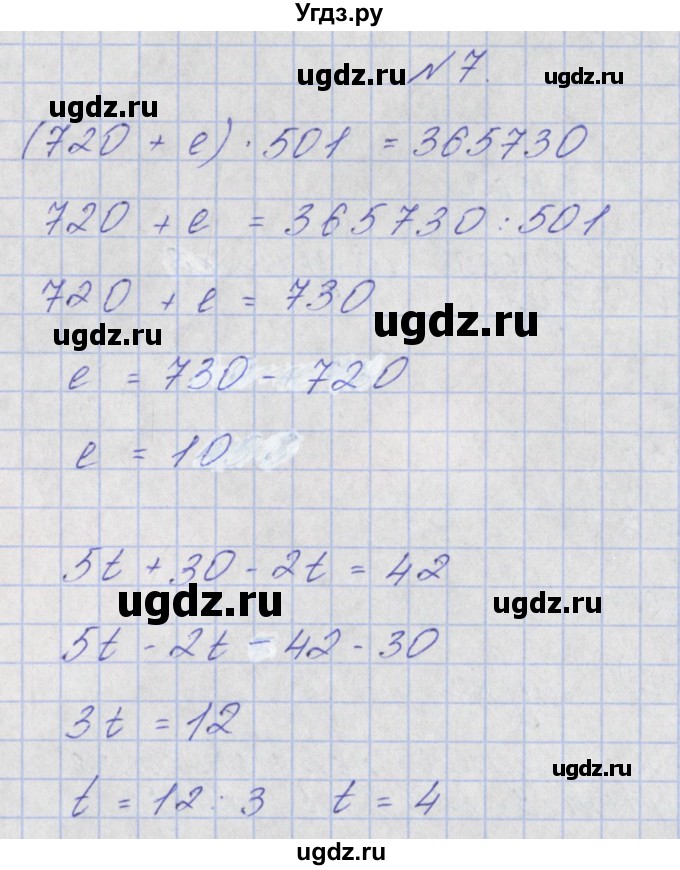 Угдз.ру
ugdz.ru № 7. ugdz.ru
ugdz.ru
(720 + e) · 501 = 365730
720 + e = 365730 : 501
720 + e = 730
ugdz.ru
ugdz.ru
e = 730 - 720
e = 10
5t + 30 - 2t = 42
ugdz.ru
ugdz.ru
5t - 2t = 42 - 30
3t = 12
ugdz.ru
t = 12 : 3 t = 4
ugdz.ru